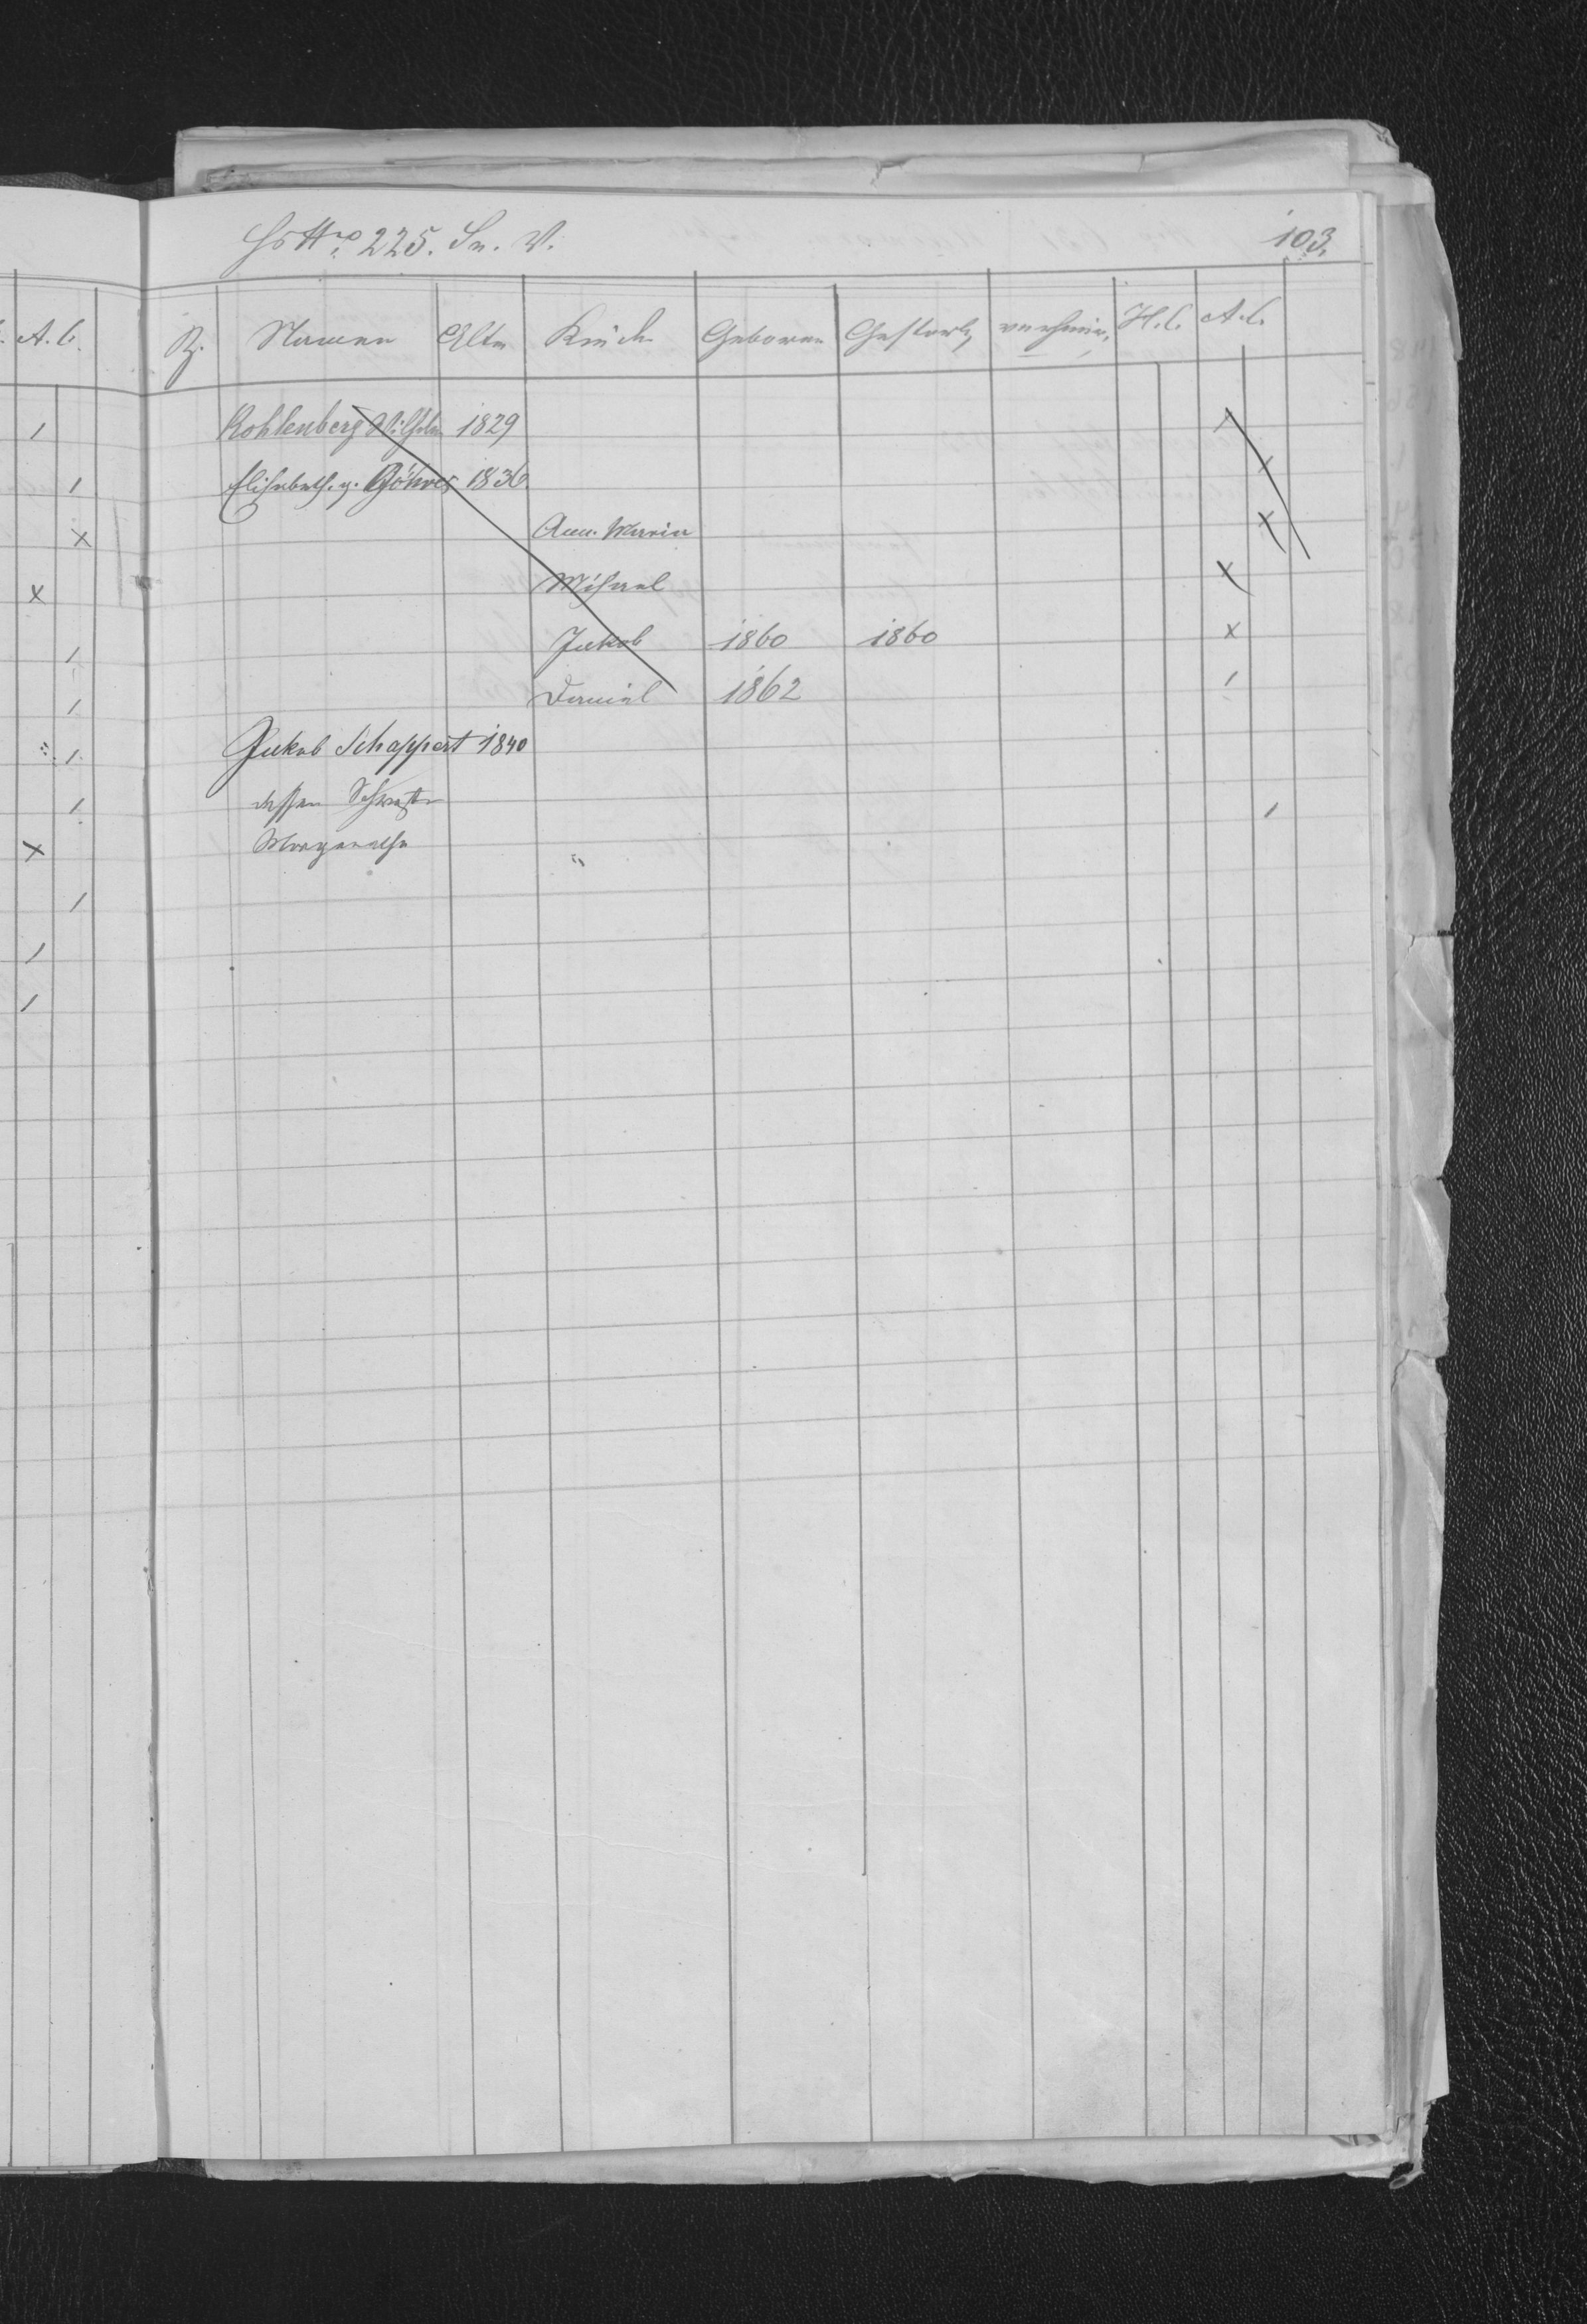 Hs Nro. 225. Sn. W.
103.
A. C.
Z. Namen Alter Kinder Geboren Gestorb. H. C. A. C.
Kohlenberg Wilhelm 1829
Elisabeth. g. Göhres 1836.
Ann. Maria
Michael
Jakob 1860 1860
Daniel 1862
Jakob Schappert 1840
dessen Schwester
Margaretha